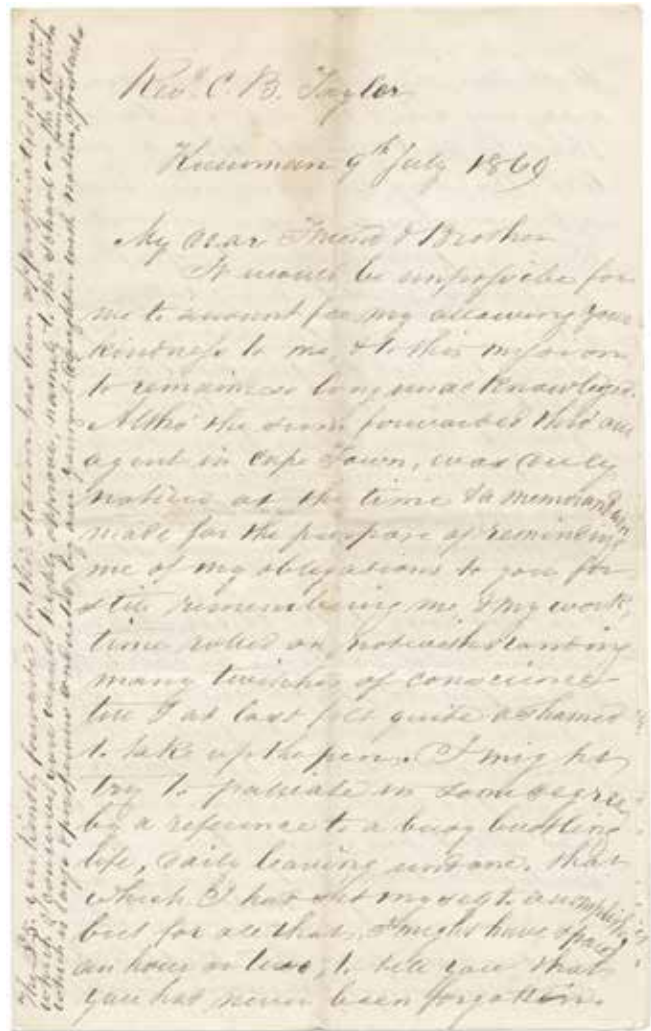 Revd. C. B. Tayler
Kuruman 9th July 1869
My dear Friend & Brother
It would be impossible for
me to account for my allowing your
kindness to me, & to this mission
to remain so long unacknowledged.
Altho' the sum forwarded thro' our
agent in Cape Town, was duly
noticed at the time & a memorandum
made for the purpose of reminding
me of my obligations to you for
still remembering me & my work,
time rolled on, notwithstanding
many twitches of conscience
till I at last felt quite ashamed
to take up the pen. I might
try to palliate in some degree
by a reference to a busy bustling
life, daily leaving undone, that
which I had set myself to accomplish,
but for all that, I might have spared
an hour or two, to tell you that
you had never been forgotten.
The £5. you kindly forwarded for this station has been appropriated in a way
which I conceived you would highly approve, namely to the school on the station
which is large & prosperous conducted by our youngest daughter with native assistants